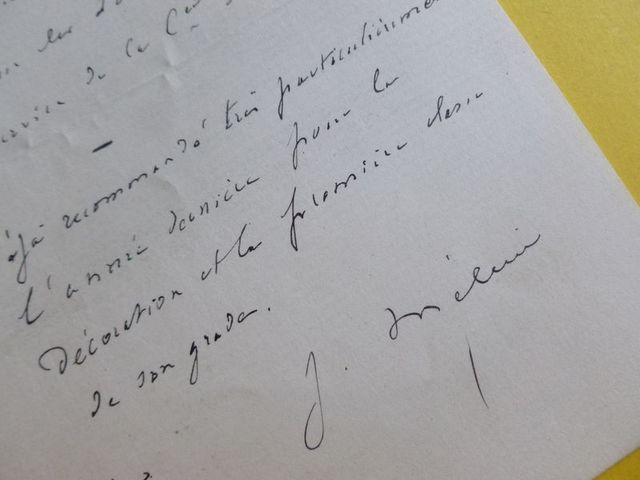 de la
déjà recommandé très particulièrement
l'année dernière pour la
Décoration et la première classe
de son grade.
J. Méline